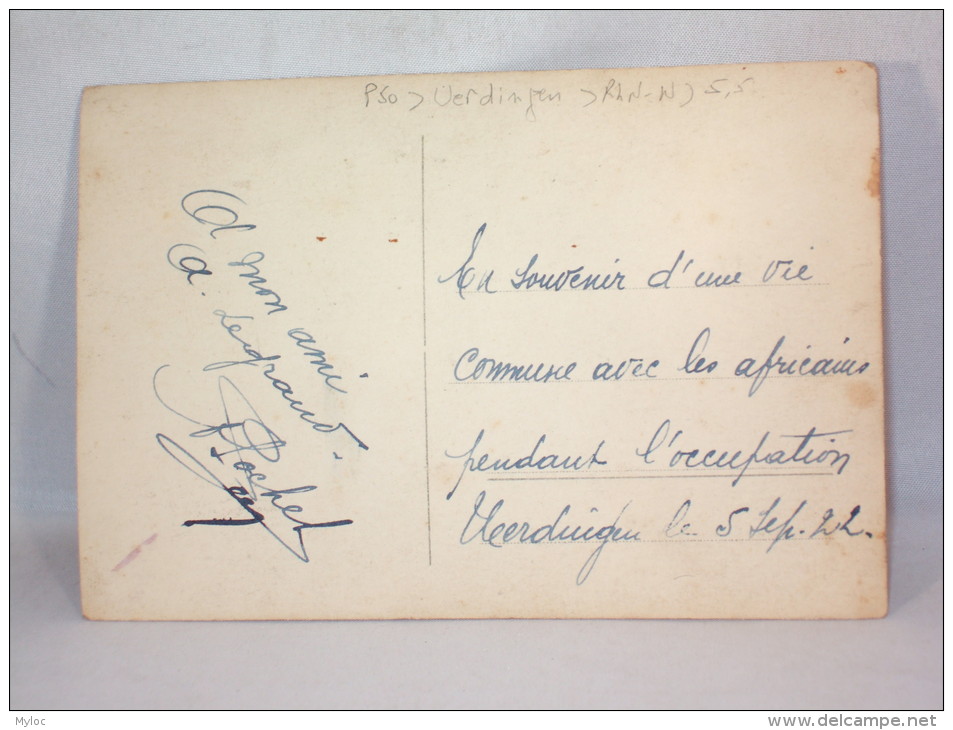 PSO > Uerdingen > RhN-W) 5,5
A mon ami
A. Legrand.
Rochet
En souvenir d'une vie
commune avec les africains
pendant l'occupation
Uerdingen le 5 Sep. 22.
Myloc
delcampe.net